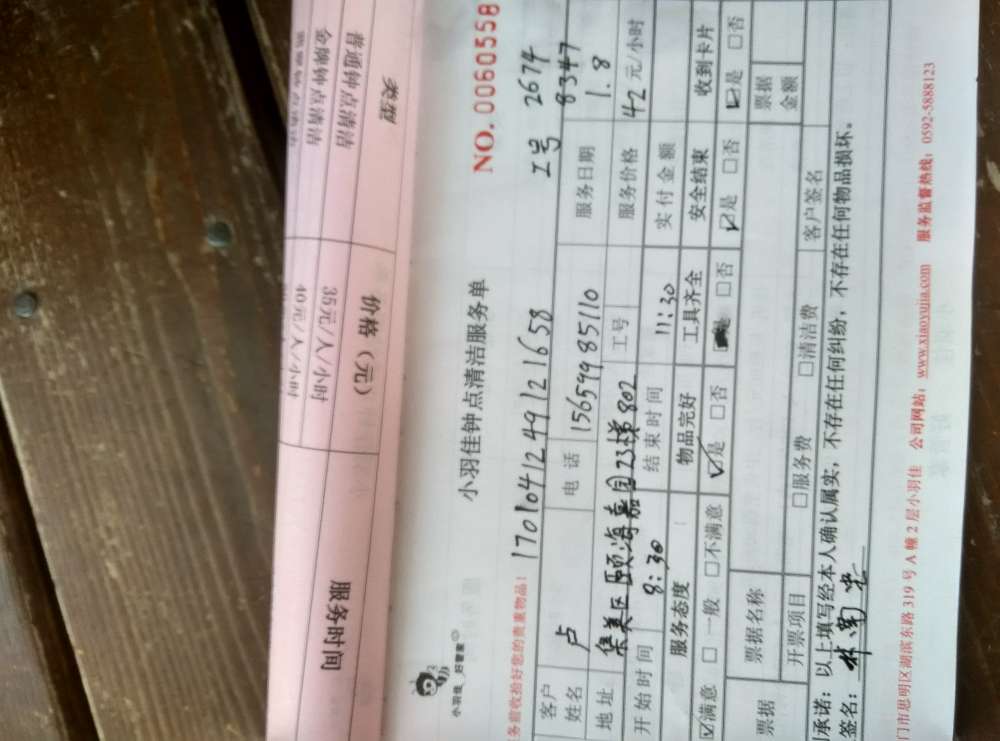 类型
价格（元）
服务时间
普通钟点清洁
35元/人/小时
金牌钟点清洁
40元/人/小时
小羽佳 好管家
小羽佳钟点清洁服务单
NO. 0060558
务前收拾好您的贵重物品！
1701041249121658
工号 2674
8347
客户姓名
卢
电话
15659985110
服务日期
1.8
地址
集美区颐海嘉园23梯802
工号
服务价格
42元/小时
开始时间
8:30
结束时间
11:30
实付金额
服务态度
物品完好
工具齐全
安全结束
收到卡片
☑满意 □一般 □不满意
☑是 □否
是 □否
☑是 □否
☑是 □否
票据
票据名称
票据金额
开票项目
□服务费
□清洁费
客户签名
承诺：以上填写经本人确认属实，不存在任何纠纷，不存在任何物品损坏。
签名：
门市思明区湖滨东路 319 号 A 幢 2 层小羽佳 公司网站：www.xiaoyujia.com 服务监督热线：0592-5888123